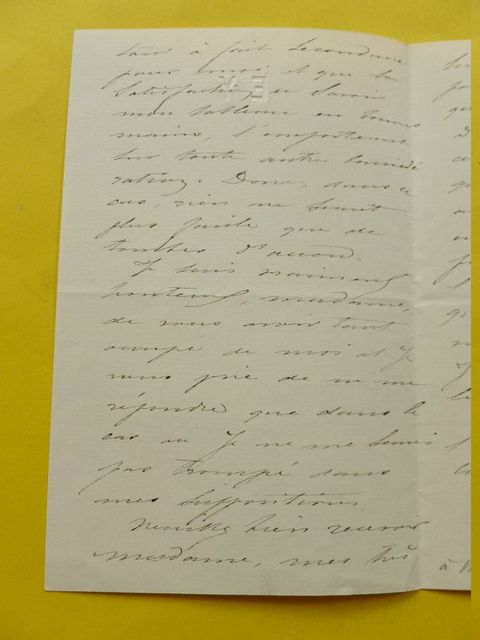 tout à fait secondaire
pour moi et que la
satisfaction de savoir
mon tableau en bonnes
mains, l'emporterait
sur toute autre considé
ration. Donc, dans ce
cas, rien ne serait
plus facile que de
tomber d'accord.
Je suis vraiment
honteux, madame,
de vous avoir tant
occupé de moi et je
vous prie de ne me
répondre que dans le
cas où je ne me serais
pas trompé dans
mes suppositions.
Veuillez bien recevoir
madame, mes très